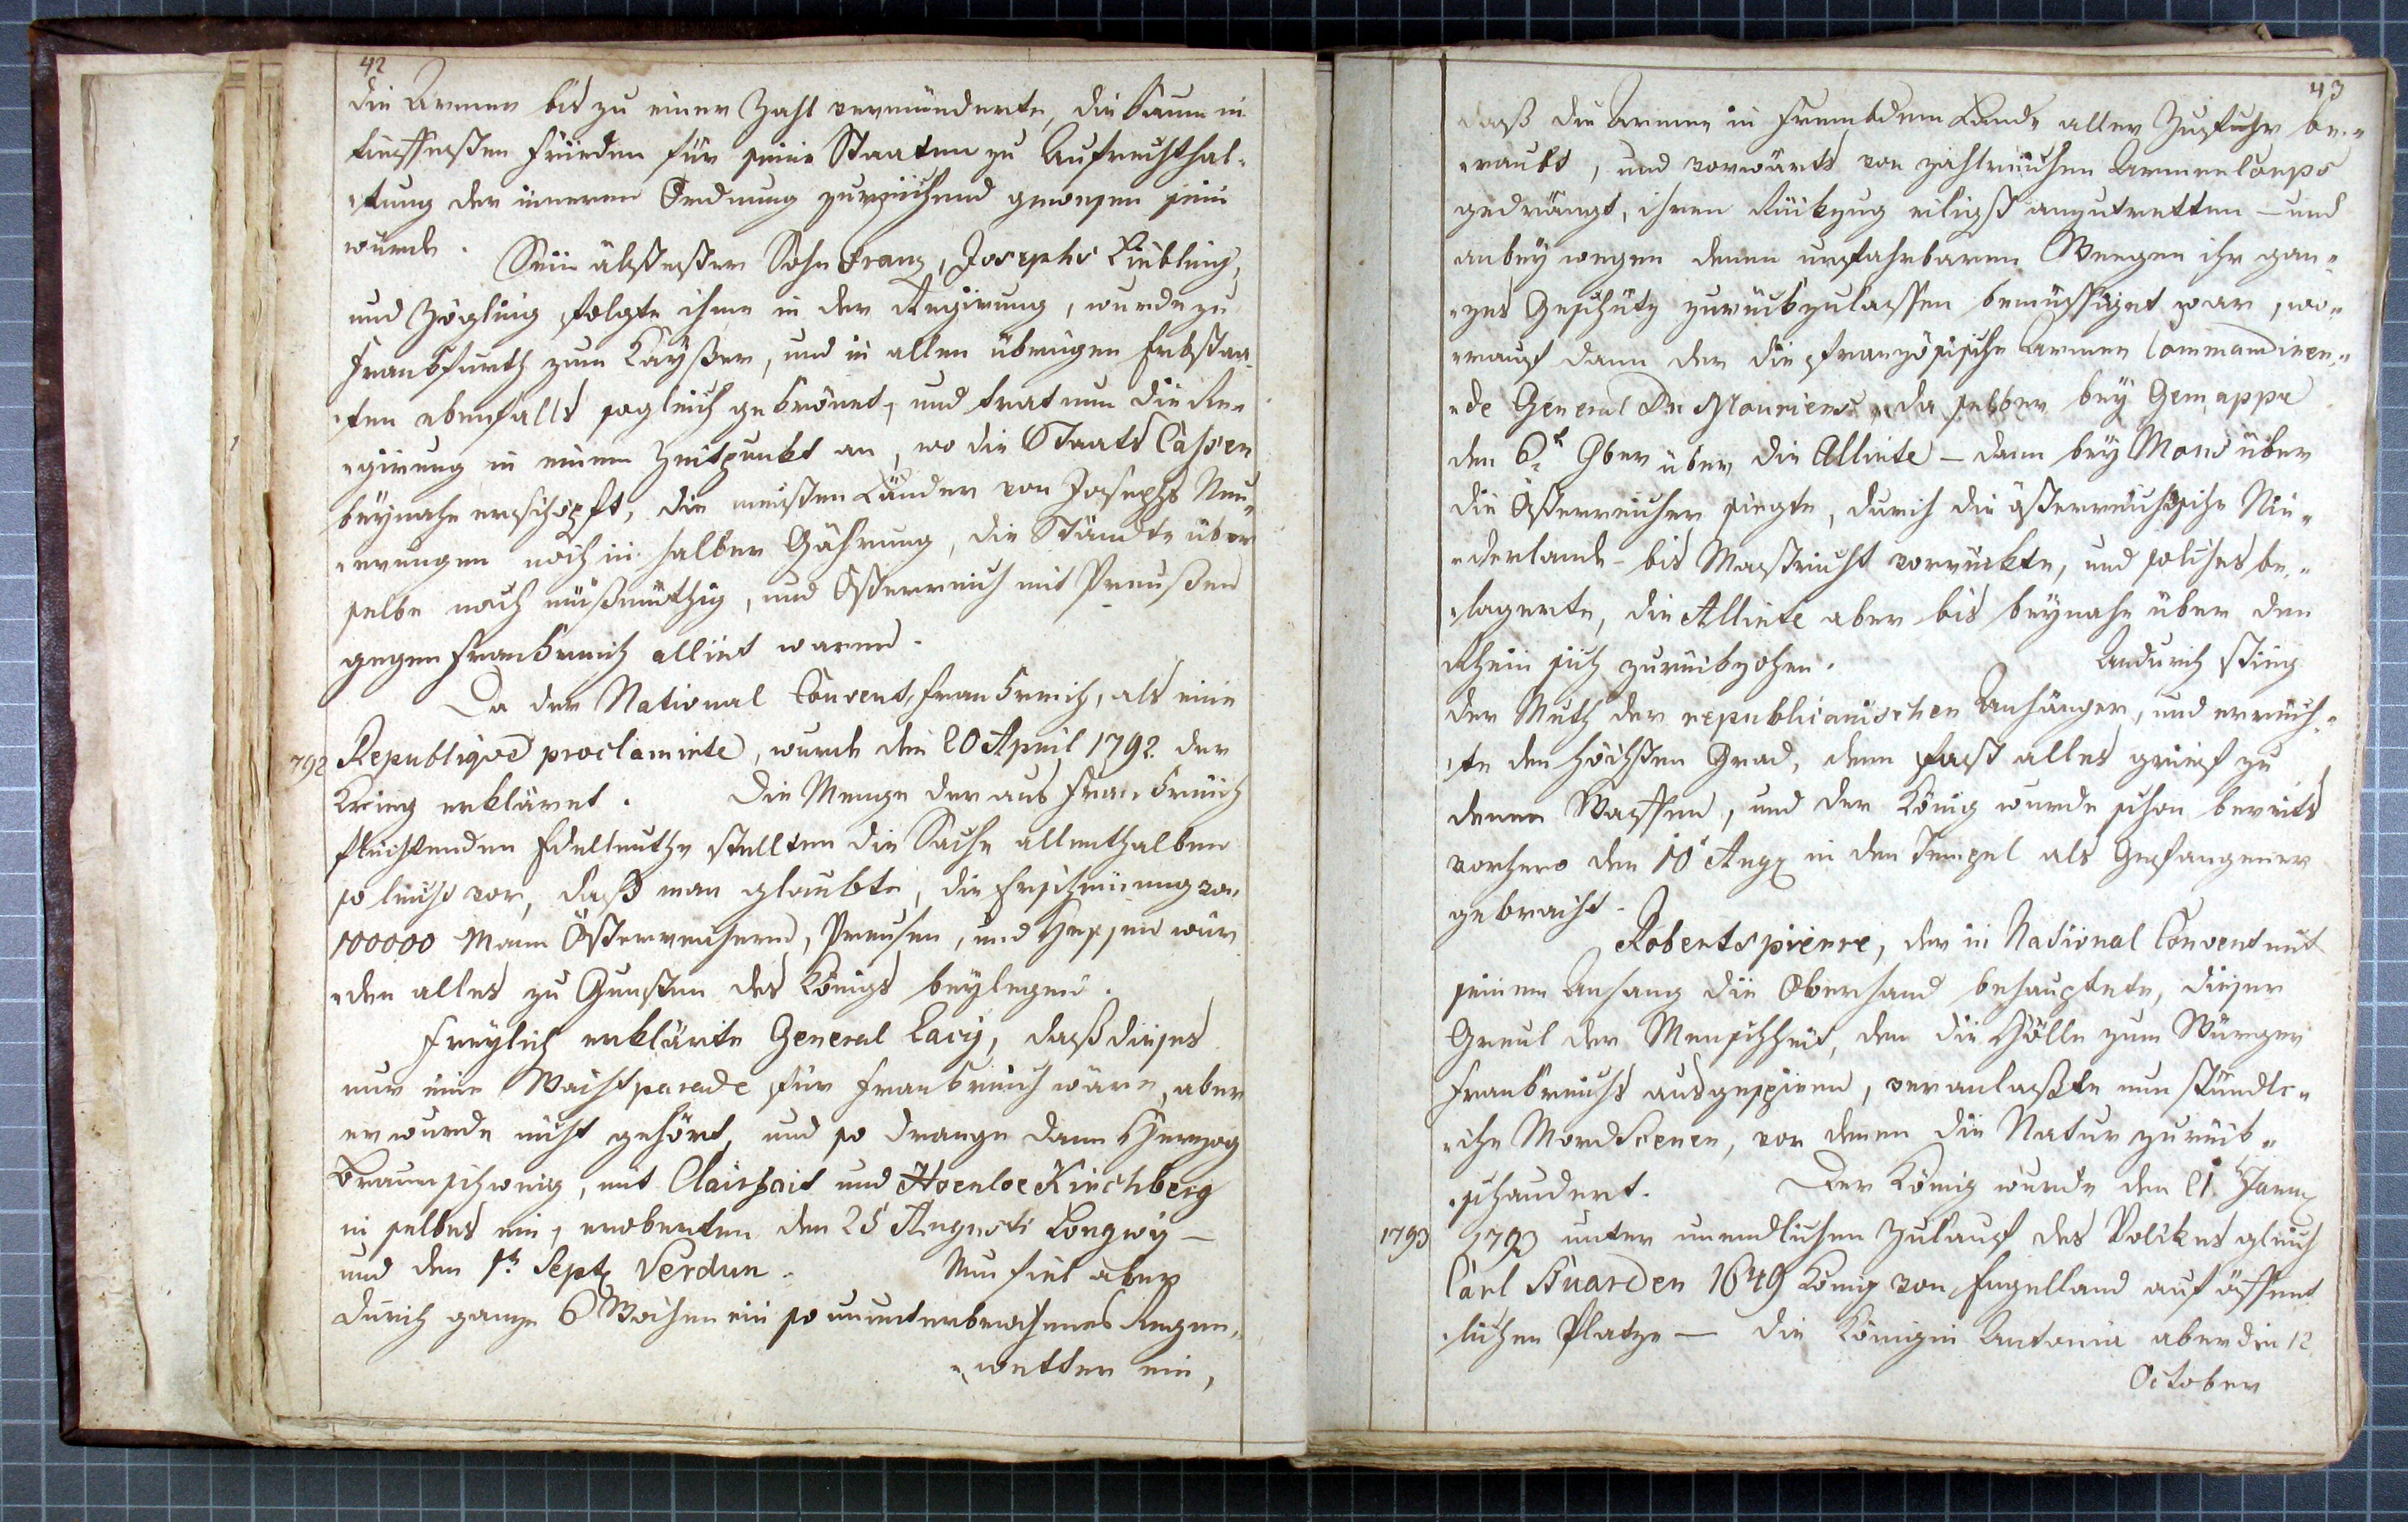 42
die Armee bis zu einer Zahl verminderte, die kaum in
tieffesten Frieden für seine Staaten zu Aufrechthal-
„tung der inneren Ordnung zureichend gewesen sein
wurde. Sein ältester Sohn Franz, Josephs Liebling,
und Zögling folgte ihme in der Regirung, wurde zu
Frankfurth zum Kayßer, und in allen übrigen Erbstaa„
„ten ebenfalls sogleich gekrönet, und trat nun die Re„
„girung in einem Zeitpunkt an, wo die Staats Cassen
beynahe erschöpft, die meisten Länder von Josephs Neu„
„erungen noch in halber Gährung, die Stände über
selbe noch mißmüthig, und Österreich mit Preußen
gegen Frankreich allirt waren.
Da der National Convent, Frankreich, als eine
792 Republique proclamirte, wurde den 20 April 1792 der
Krieg erkläret. Die Menge der aus Frankreich
flüchtenden Edelleuthe stellten die Sache allenthalben
so leicht vor, daß man glaubte, die Erscheinung von
100000 Mann Österreichern, Preusen, und Hessen wür
„den alles zu Gunsten des Königs beylegen.
Freylich erklärte General Lacy, daß dieses
nur eine Wachtparade für Frankreich wäre, aber
er wurde nicht gehört, und so drange dann Herzog
Braunschweig, mit Clairfait und Hoenloe Kirchberg
in selbes ein, eroberten den 25 Augusti Longwy —
und den 1t Sept Verdun. Nun fiel aber
durch ganze 6 Wochen ein so ununterbrochenes Regen„
„wetter ein,
43
daß die Armee in frembdem Lande aller Zufuhr be„
„raubt, und vorwärts von zahlreichen Armee Corps
gedrängt, ihren Rückzug eiligst anzutretten — und
anbey wegen denen unfahrbaren Weegen ihr gan„
„zes Geschütz zurückzulassen bemüssiget war, wo„
„rauf dann der die französische Armee Commandiren„
„de General Du Mouriers, da selber bey Gemappe
den 6t 9ber über die Alliirte — dann bey Mons über
die Österreicher siegte, durch die österreichische Nie„
„derlande – bis Mastricht vorrückte, und solches be„
„lagerte, die Alliirte aber bis beynahe über den
Rhein sich zurückzohen. Andurch stieg
der Muth der republicanischen Anhänger, und erreich„
„te den höchsten Grad, denn fast alles grief zu
denen Waffen, und der König wurde schon bereits
vorhero den 10t Aug in den Tempel als Gefangener
gebracht.
Robertspierre, der in National Convent mit
seinem Anhang die Oberhand behauptete, dieser
Greul der Menschheit, den die Hölle zum Würger
Frankreichs ausgespien, veranlaßte nun stündli„
„che Mord Scenen, vor denen die Natur zurück„
„schaudert. Der König wurde den 21 Jann
1793 1793 unter unendlichen Zulauf des Volckes gleich
Carl Stuarden 1649 König von Engelland auf öffent
„lichen Platze — die Königin Antonia aber den 12
October